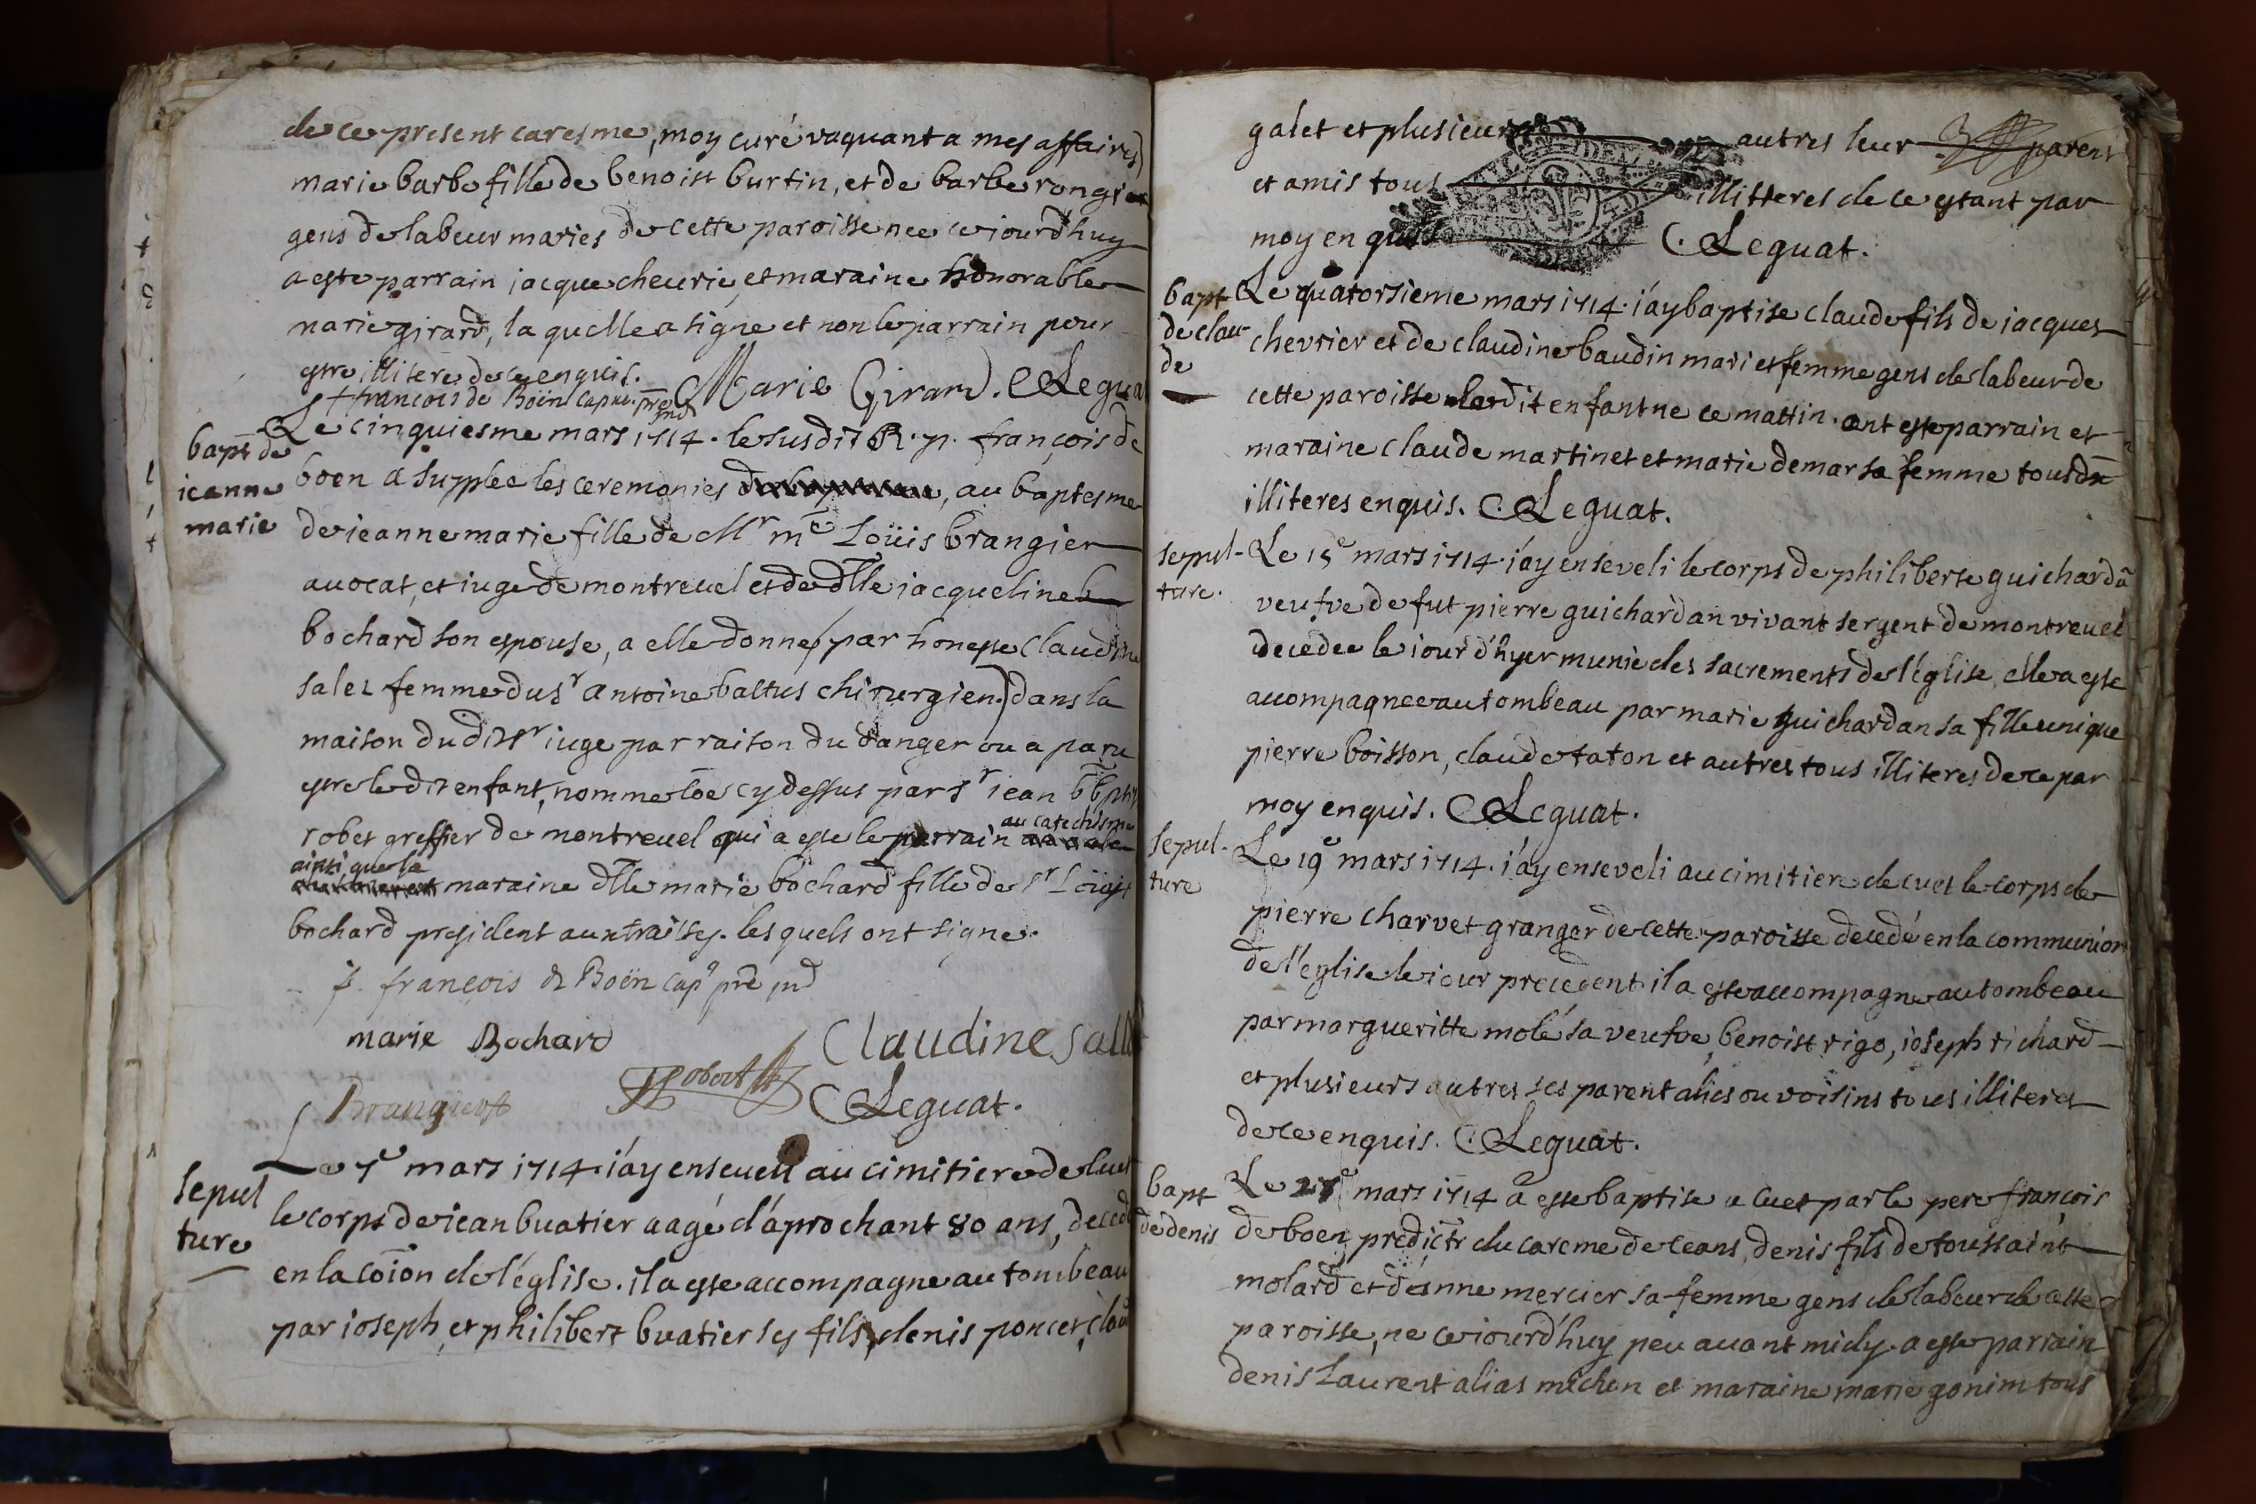 de ce present caresme, moy curé vaquant a mes affaires)
marie barbe fille de benoist burtin, et de barbe rongier
gens de labeur maries de cette paroisse nee ce iourdhuy
a este parrain jacque cheurie, et maraine honorable
marie girard, la quelle a signe et non le parrain pour
estre illitere de ce enquis.
f francois de Boën capuc. pre ind
Marie Girard. CLegua
bapt de
ieanne
marie
Le cinquiesme mars 1714. le susdit R. p. françois de
boen a supplee les ceremonies au baptesme
de ieanne marie fille de Mr me Loüis brangier
auocat, et iuge de montreuel et de dlle iacqueline
bochard son espouse, a elle donne (par honeste Claudine
salez femme du sr antoine baltus chirurgien.) dans la
maison dudit sr iuge par raison du danger ou a paru
estre ledit enfant, nomme coe cy dessus par sr iean bbptiste
au catechisme
robet greffier de montreuel qui a este le parrain
ainsi que la
maraine dlle marie bochard fille de sr Loüis
bochard president aux traittes. les quels ont signe.
f. françois de Boën cap pre ind
marie Bochard
Claudine Salle
Robert
Brangier
CLeguat.
sepul
ture
Le 7e mars 1714. i'ay enseueli au cimitiere de Cuet
le corps de iean buatier aagé d'aprochant 80 ans, decede
en la coion de l'église. il a este accompagne au tombeau
par ioseph, et philibert buatier ses fils, denis poncet, clau
galet et plusieurs autres leur parent
et amis tous illitteres de ce estant par
moy enquis C. Leguat.
bapt
de clau
de
Le quatorsieme mars 1714. i'ay baptise claude fils de iacques
chevrier et de claudine baudin mari et femme gens de labeur de
cette paroisse ledit enfant ne ce mattin. ont este parrain et
maraine claude martinet et marie demar sa femme tous de
illiteres enquis. C. Leguat.
sepul-
ture.
Le 15e mars 1714. i'ay enseveli le corps de philiberte guichardã
veufve de fut pierre guichardan vivant sergent de montreuel
decedee le iour d'hyer munie des sacrements de l'église, elle a este
accompagnee au tombeau par marie guichardan sa fille unique
pierre boisson, claude taton et autres tous illiteres de ce par
moy enquis. CLeguat.
sepul-
ture
Le 19e mars 1714. i'ay enseveli au cimitiere de cuet le corps de
pierre charvet granger de cette paroisse decedé en la communion
de l'eglise le iour precedent il a este accompagne au tombeau
par margueritte molé sa veufve, benoist rigo, ioseph richard
et plusieurs autres ses parent alies ou voisins tous illiteres
de ce enquis. C. Leguat.
bapt
de denis
Le mars 1714 a este baptise a Cuet par le pere françois
de boen predictr du careme de ceans, denis fils de toussaint
molard et d'anne mercier sa femme gens de labeur de cette
paroisse, ne ce iourd'huy peu auant midy. a este parrain
denis Laurent alias michon et maraine marie gonim tous